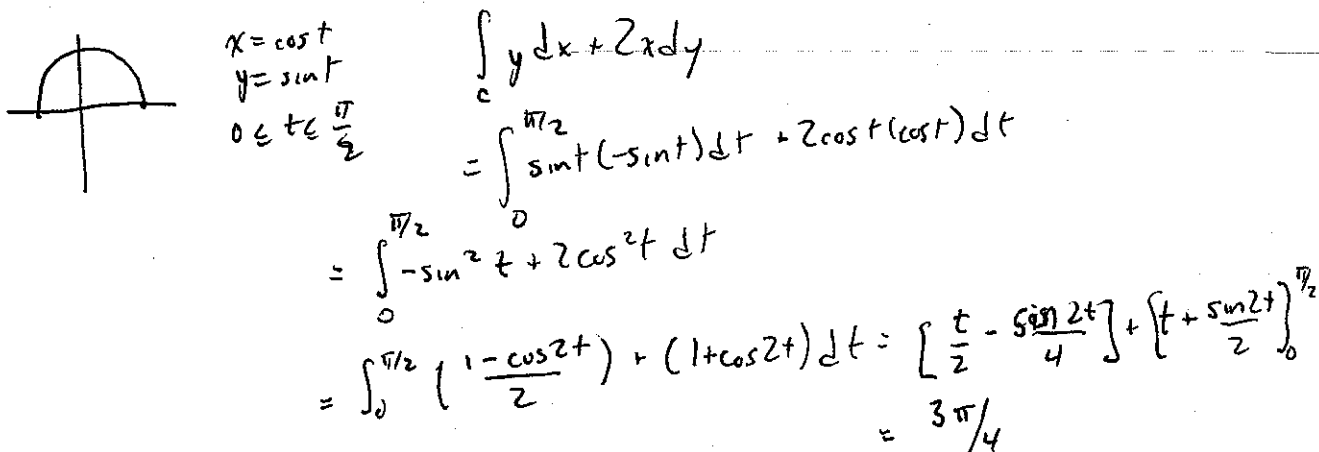 x = cos t
y = sin t
0 ≤ t ≤ π/2
∫_C y dx + 2x dy
= ∫_0^{π/2} sin t (-sin t) dt + 2 cos t (cos t) dt
= ∫_0^{π/2} -sin² t + 2cos² t dt
= ∫_0^{π/2} (1 - cos 2t / 2) + (1 + cos 2t) dt = [t/2 - sin 2t / 4] + [t + sin 2t / 2]_0^{π/2}
= 3π/4